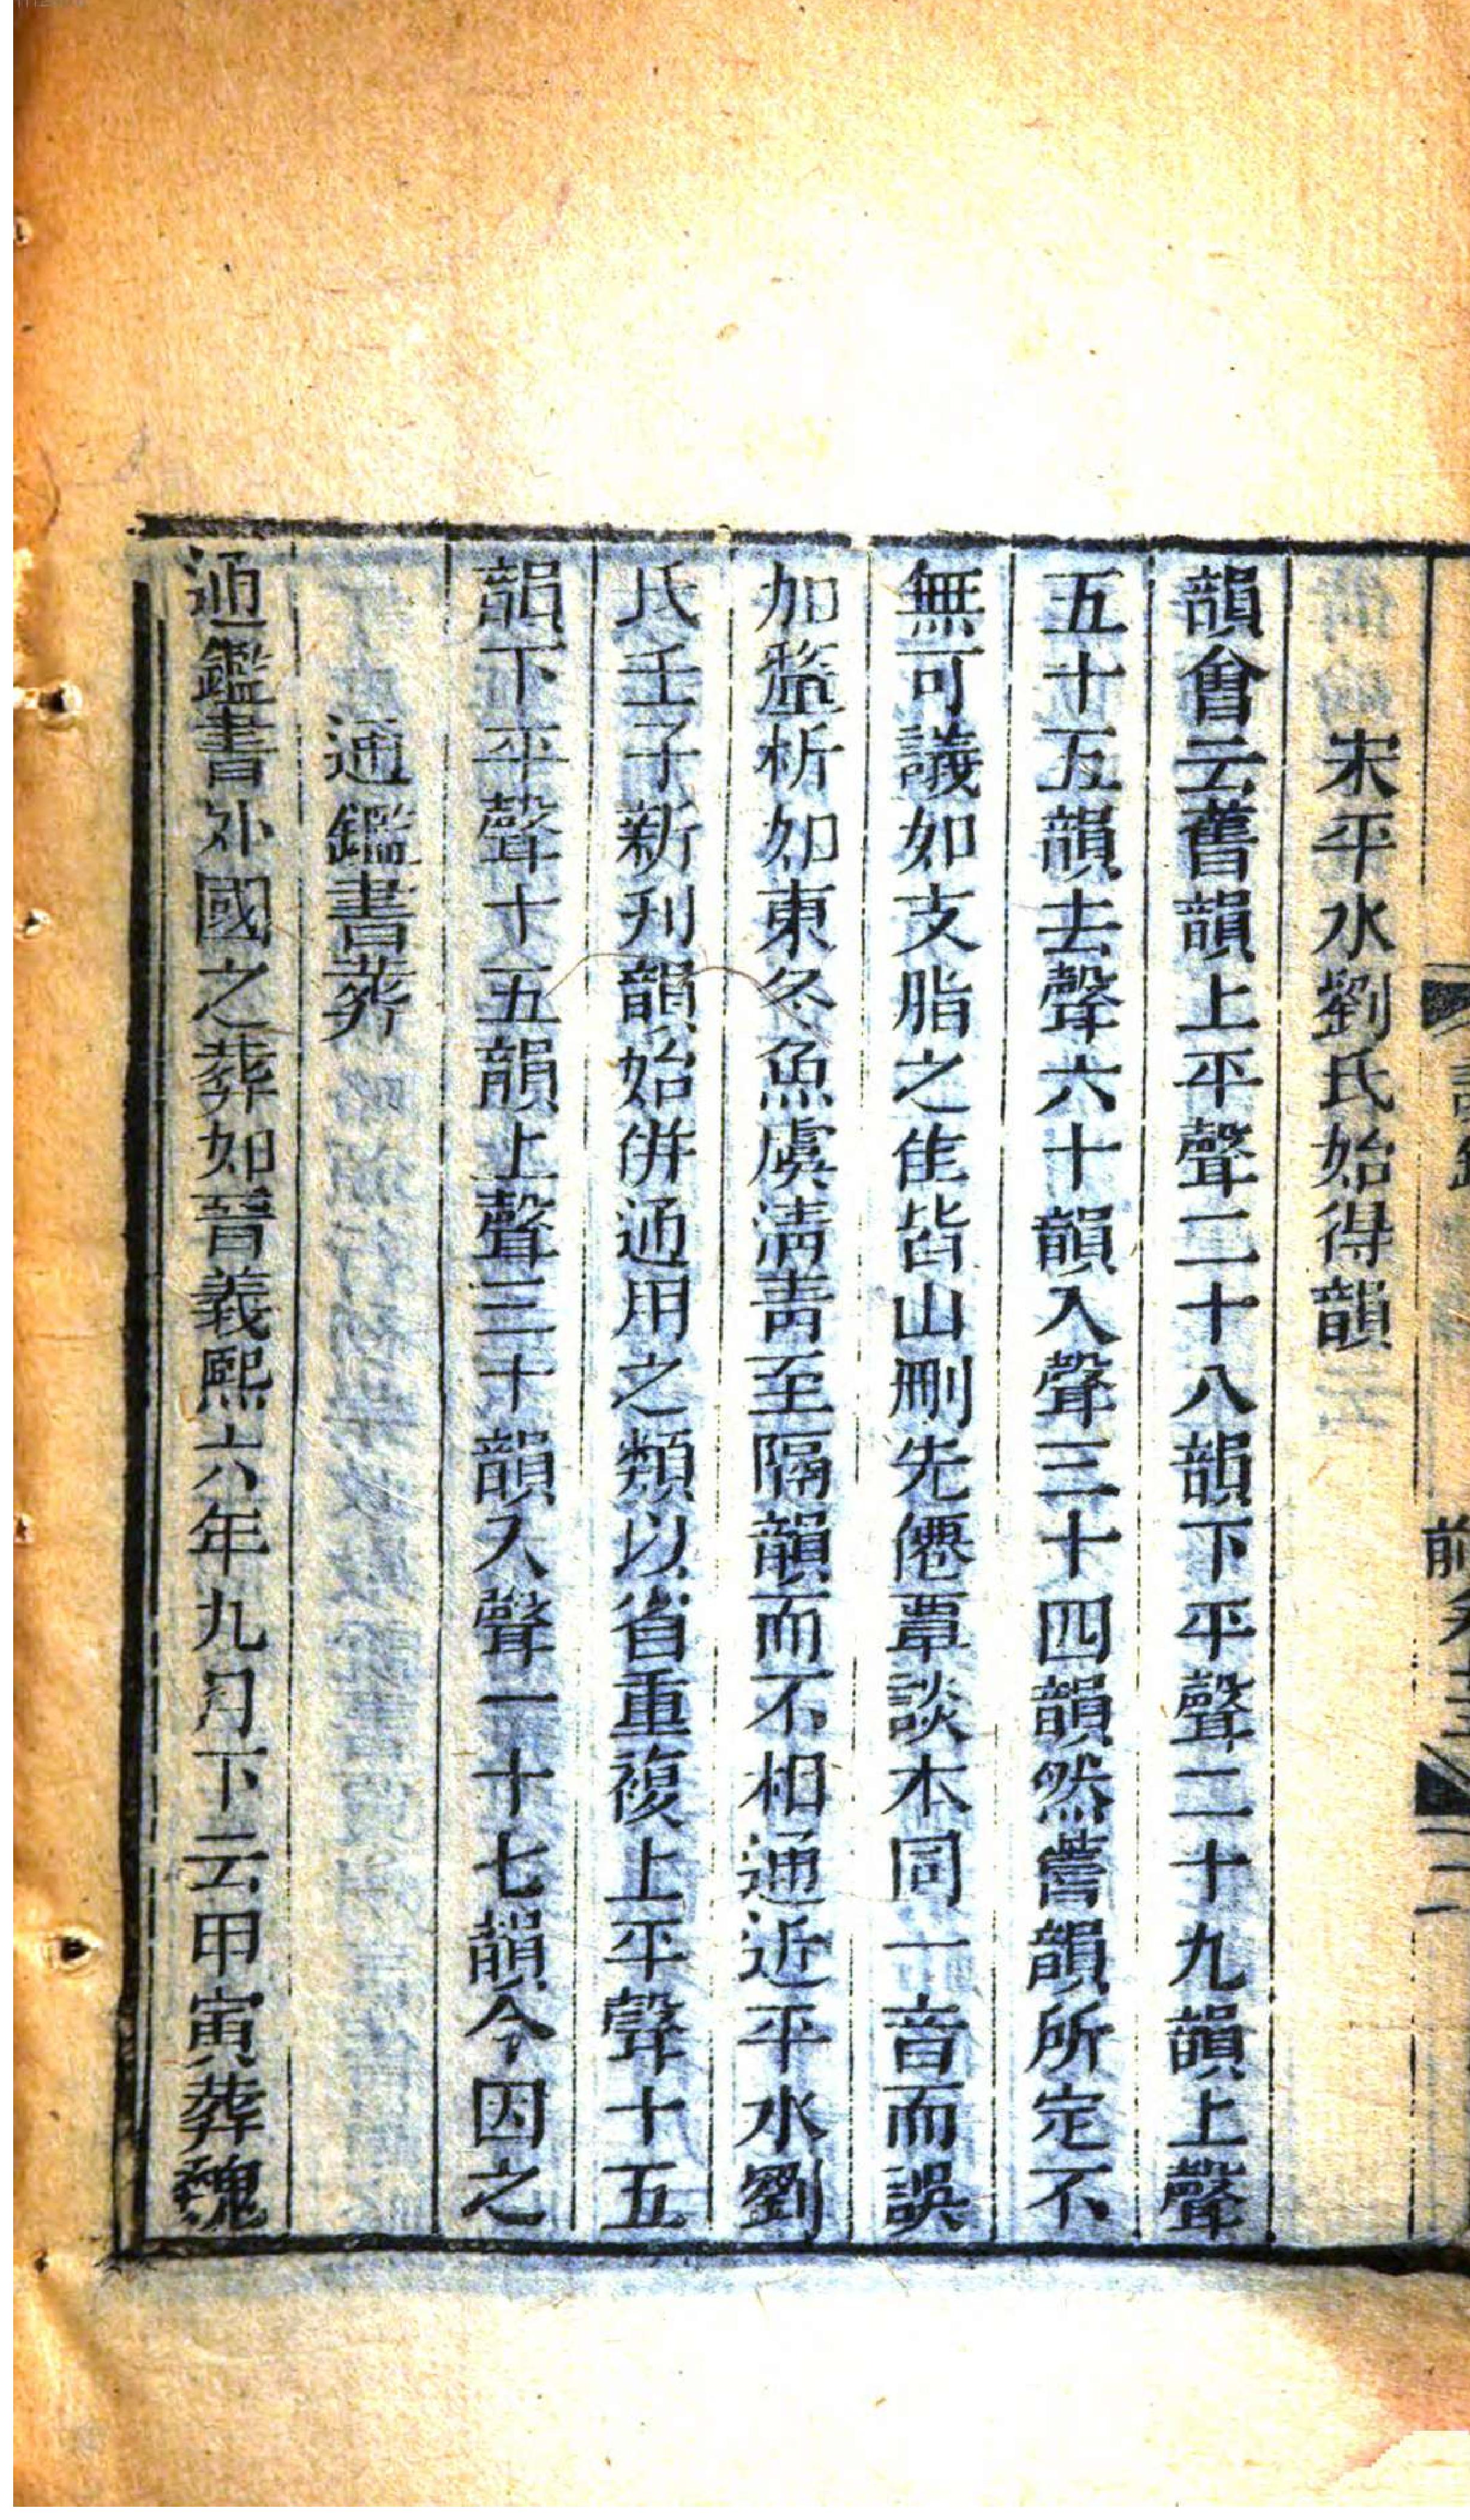 宋平水劉氏始得韻
韻會云舊韻上平聲二十八韻下平聲二十九韻上聲
五十五韻去聲六十韻入聲三十四韻然舊韻所定不
無可議如支脂之佳皆山刪先僊覃談本同一音而誤
加釐析如東冬魚虞清青至隔韻而不相通近平水劉
氏壬子新刋韻始併通用之類以省重複上平聲十五
韻下平聲十五韻上聲三十韻入聲一十七韻今因之
通鑑書葬
通鑑書外國之葬如晉義熙六年九月下云甲寅葬魏